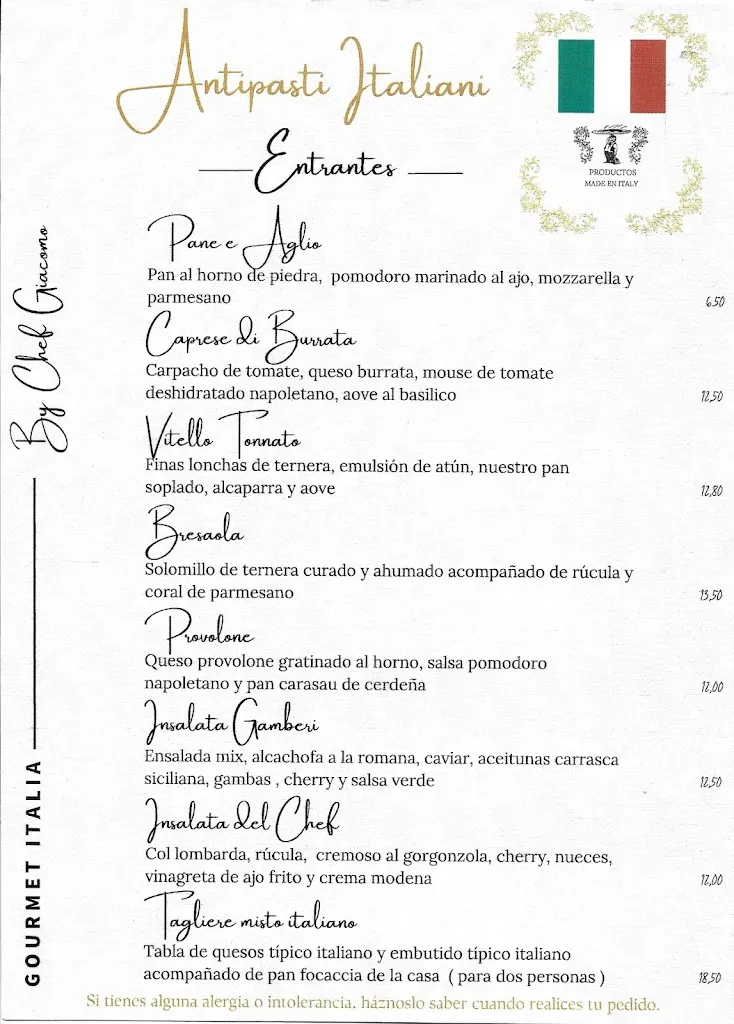 Antipasti Italiani
PRODUCTOS
MADE IN ITALY
Entrantes
Pane e Aglio
Pan al horno de piedra, pomodoro marinado al ajo, mozzarella y
parmesano 6,50
Caprese di Burrata
Carpacho de tomate, queso burrata, mouse de tomate
deshidratado napoletano, aove al basilico 12,50
Vitello Tonnato
Finas lonchas de ternera, emulsión de atún, nuestro pan
soplado, alcaparra y aove 12,80
Bresaola
Solomillo de ternera curado y ahumado acompañado de rúcula y
coral de parmesano 13,50
Provolone
Queso provolone gratinado al horno, salsa pomodoro
napoletano y pan carasau de cerdeña 12,00
Insalata Gamberi
Ensalada mix, alcachofa a la romana, caviar, aceitunas carrasca
siciliana, gambas , cherry y salsa verde 12,50
Insalata del Chef
Col lombarda, rúcula, cremoso al gorgonzola, cherry, nueces,
vinagreta de ajo frito y crema modena 12,00
Tagliere misto italiano
Tabla de quesos típico italiano y embutido típico italiano
acompañado de pan focaccia de la casa ( para dos personas ) 18,50
Si tienes alguna alergia o intolerancia, háznoslo saber cuando realices tu pedido.
By Chef Giacomo
GOURMET ITALIA